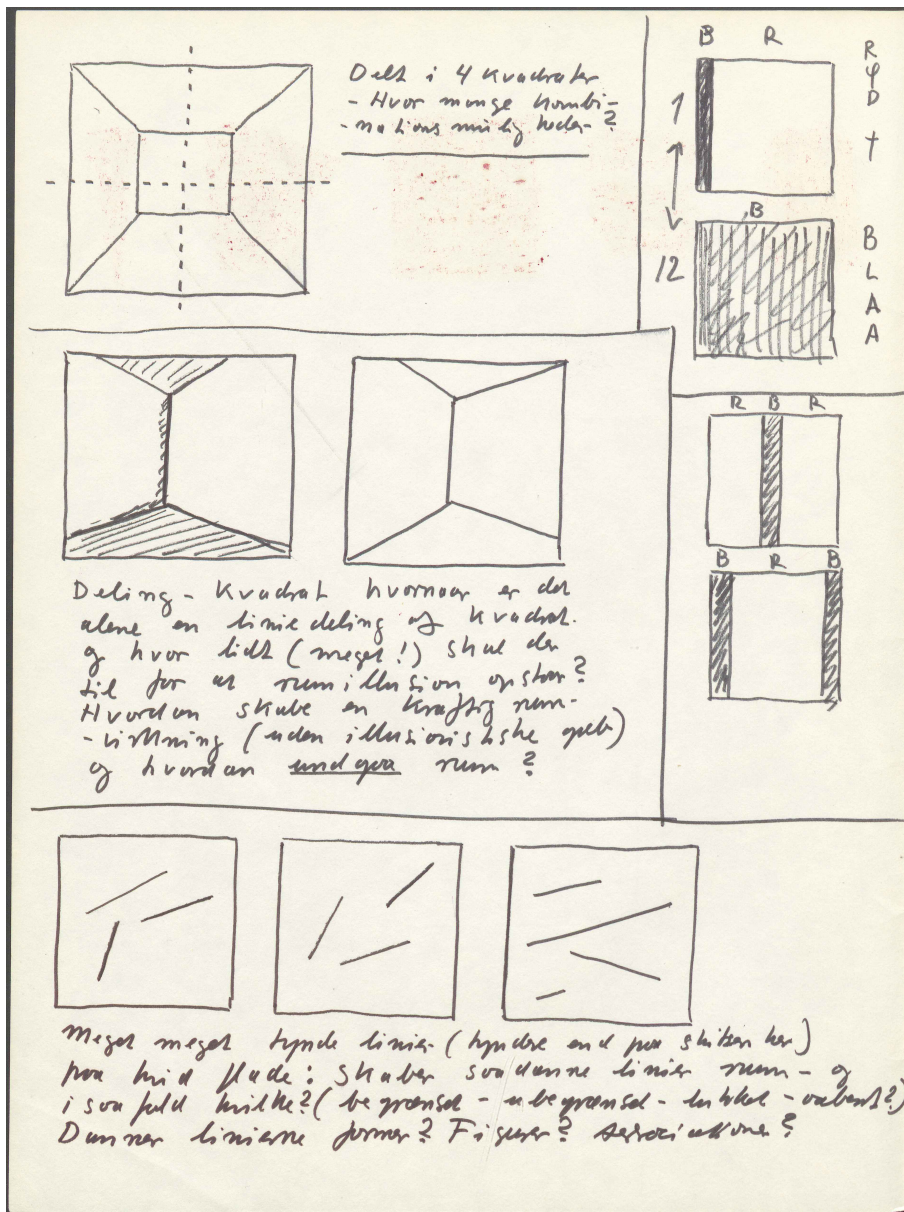 Delt i 4 Kvadrater
- Hvor mange kombi-
-nations muligheder?
B R
R
Ø
D
+
1
B
12
B
L
A
A
R B R
B R B
Deling - Kvadrat hvornaar er det
alene en liniedeling af kvadrat.
og hvor lidt (meget!) skal der
til for at rumillusion opstaar?
Hvordan skabe en kraftig rum-
-virkning (uden illusionistiske)
og hvordan undgaa rum?
Meget meget tynde linier (tyndre end paa skitsen her)
paa hvid flade: skaber saadanne linier rum - og
i saa fald hvilke? (begrænset - ubegrænset - lukket - aabent?)
Danner linierne former? Figurer? Associationer?